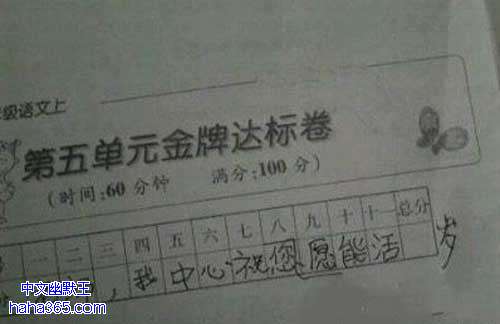 级语文上
第五单元金牌达标卷
(时间:60分钟 满分:100分)
一 二 三 四 五 六 七 八 九 十 十一 总分
,我中心祝您愿能活 岁
中文幽默王
haha365.com